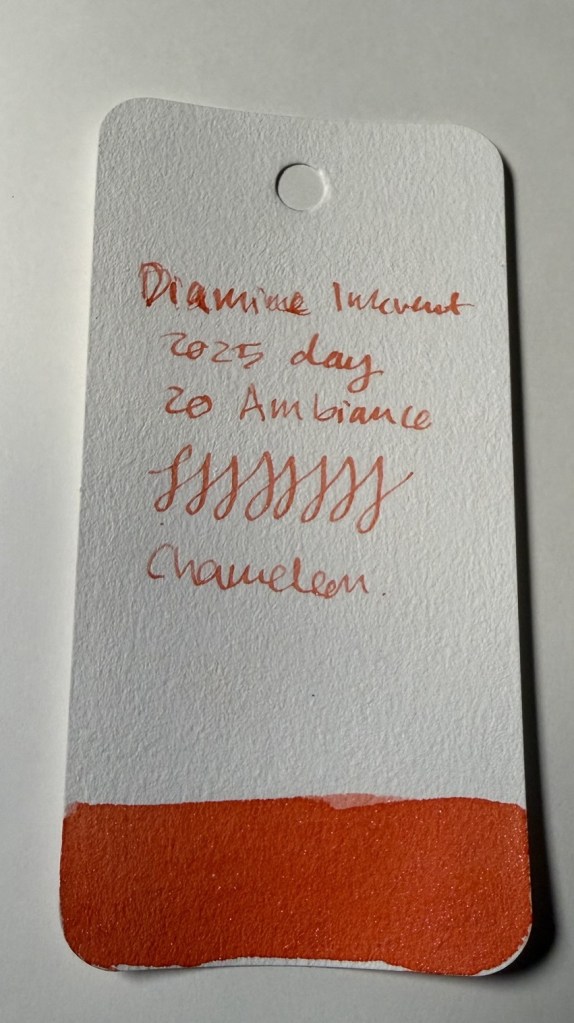 Diamine Inkvent
2025 day
20 Ambiance
Chameleon.